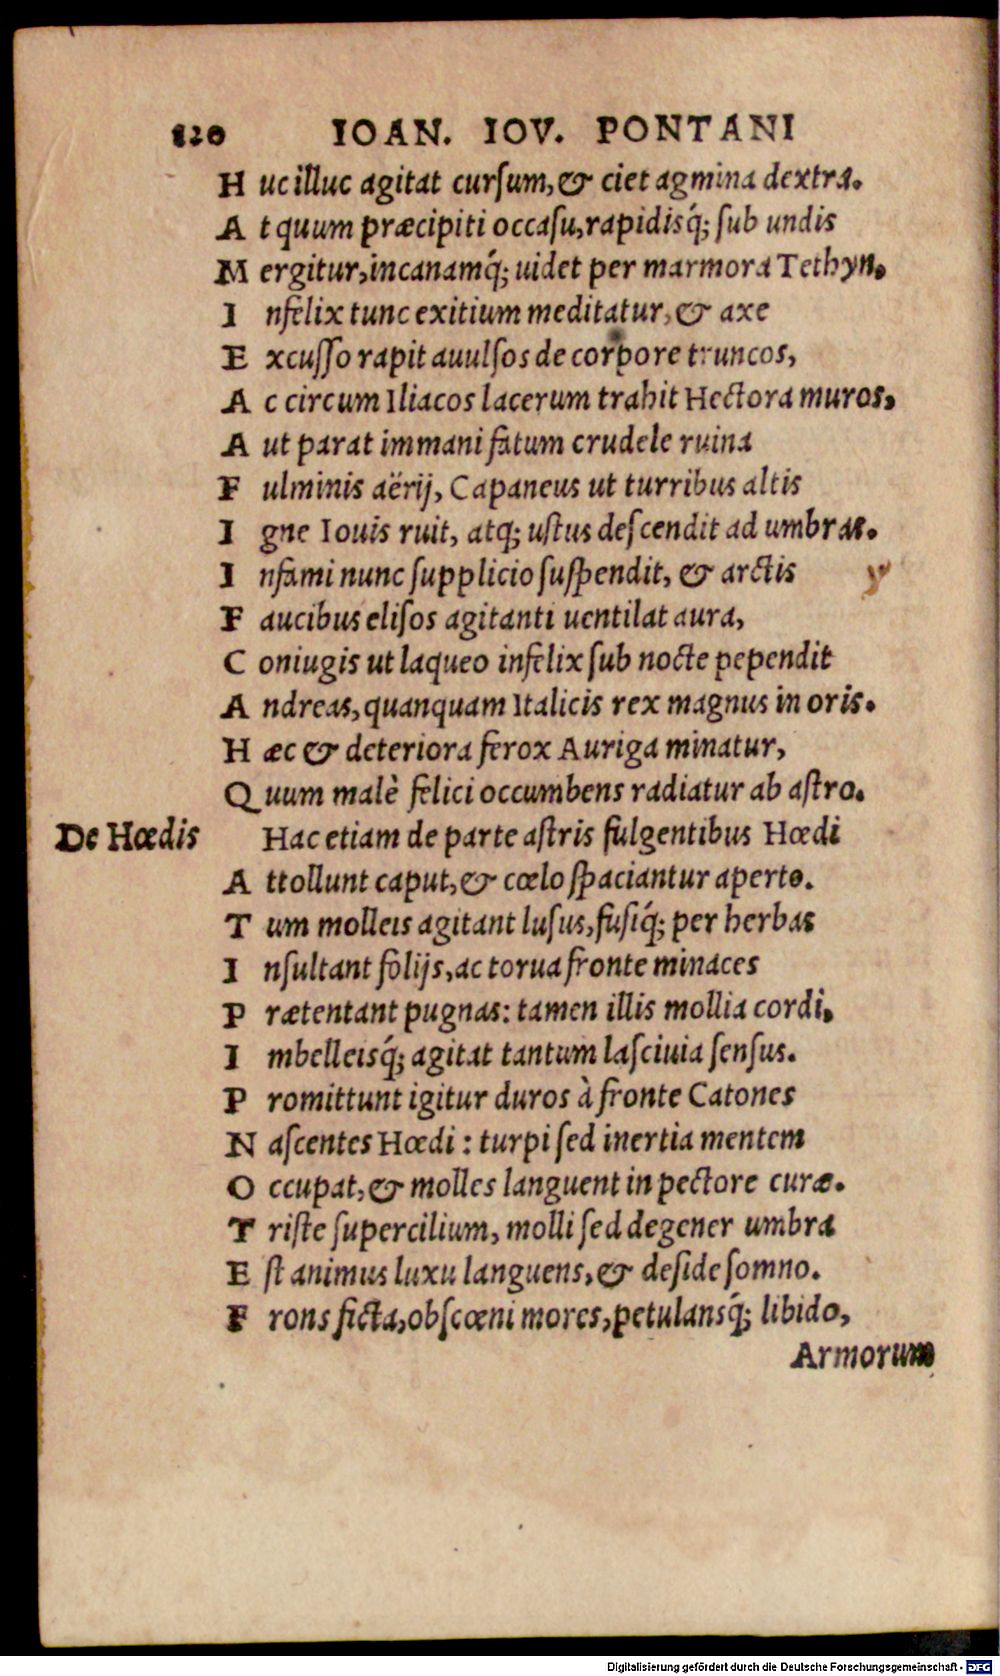 120 IOAN. IOV. PONTANI
H uc illuc agitat cursum, & ciet agmina dextra.
A t quum præcipiti occasu, rapidisq́; sub undis
M ergitur, incanamq́; uidet per marmora Tethyn,
I nfelix tunc exitium meditatur, & axe
E xcusso rapit auulsos de corpore truncos,
A c circum Iliacos lacerum trahit Hectora muros,
A ut parat immani fatum crudele ruina
F ulminis aërij, Capaneus ut turribus altis
I gne Iouis ruit, atq; ustus descendit ad umbras.
I nfami nunc supplicio suspendit, & arctis
F aucibus elisos agitanti uentilat aura,
C oniugis ut laqueo infelix sub nocte pependit
A ndreas, quanquam Italicis rex magnus in oris.
H æc & deteriora ferox Auriga minatur,
Q uum malè felici occumbens radiatur ab astro.
De Hœdis Hac etiam de parte astris fulgentibus Hœdi
A ttollunt caput, & cœlo spaciantur aperto.
T um molleis agitant lusus, fusiq́; per herbas
I nsultant folijs, ac torua fronte minaces
P rætentant pugnas: tamen illis mollia cordi,
I mbelleisq́; agitat tantum lasciuia sensus.
P romittunt igitur duros à fronte Catones
N ascentes Hœdi : turpi sed inertia mentem
O ccupat, & molles languent in pectore curæ.
T riste supercilium, molli sed degener umbra
E st animus luxu languens, & deside somno.
F rons ficta, obscœni mores, petulansq́; libido,
Armorum
Digitalisierung gefördert durch die Deutsche Forschungsgemeinschaft - DFG